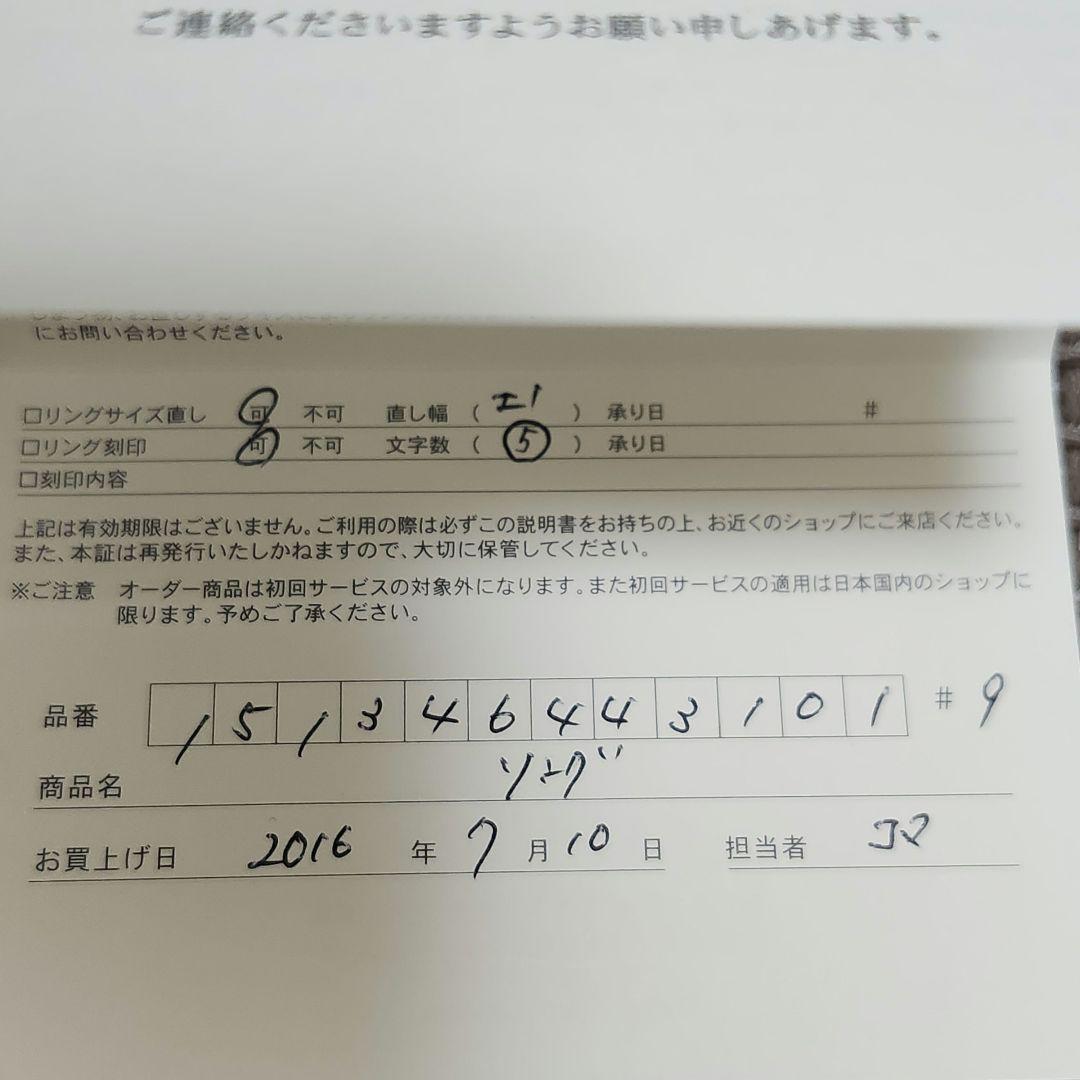 ご連絡くださいますようお願い申しあげます。
にお問い合わせください。
□リングサイズ直し 可 不可 直し幅 ( ±1 ) 承り日 #
□リング刻印 可 不可 文字数 ( 5 ) 承り日
□刻印内容
上記は有効期限はございません。ご利用の際は必ずこの説明書をお持ちの上、お近くのショップにご来店ください。
また、本証は再発行いたしかねますので、大切に保管してください。
※ご注意 オーダー商品は初回サービスの対象外になります。また初回サービスの適用は日本国内のショップに
限ります。予めご了承ください。
品番 151346443101 # 9
商品名 リング
お買上げ日 2016 年 7 月 10 日 担当者 コマ